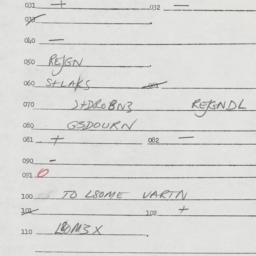 031 + 032 —
033
040 —
050 REJGN
060 S+LAKS
070 J+DROBN3 REKGNDL
080 GSDOURN
081 + 082 —
090 -
091 0
100 TO L8OME VARTN
101 102 +
110 L8OM3X